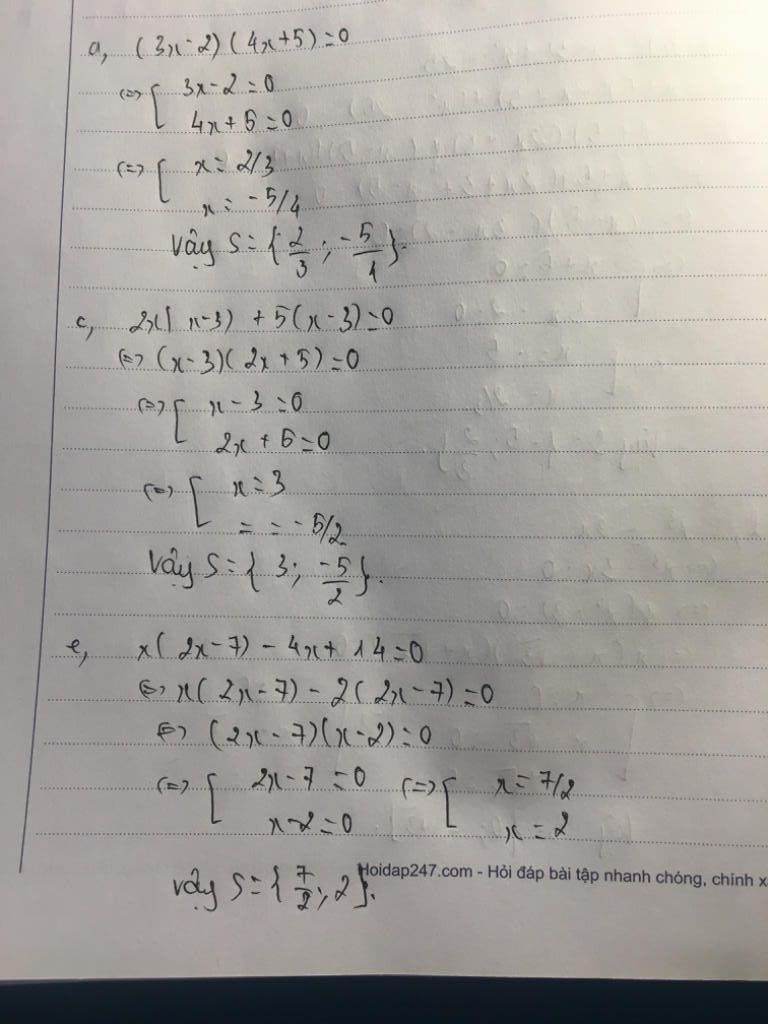 a, (3x-2)(4x+5)=0
(=> [ 3x-2=0
4x+5=0
(=> [ x=2/3
x=-5/4
Vậy S={2/3; -5/4}.
c, 2x(x-3) + 5(x-3)=0
(=> (x-3)(2x+5)=0
(=> [ x-3=0
2x+5=0
(=> [ x=3
= = -5/2
Vậy S={3; -5/2}.
e, x(2x-7) - 4x+14=0
(=> x(2x-7) - 2(2x-7)=0
(=> (2x-7)(x-2)=0
(=> [ 2x-7=0 (=> [ x=7/2
x-2=0 x=2
Vậy S={7/2; 2}.
Hoidap247.com - Hỏi đáp bài tập nhanh chóng, chính x